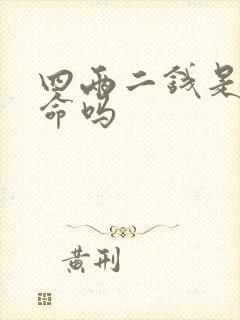 四两二钱是
命吗
黄刑